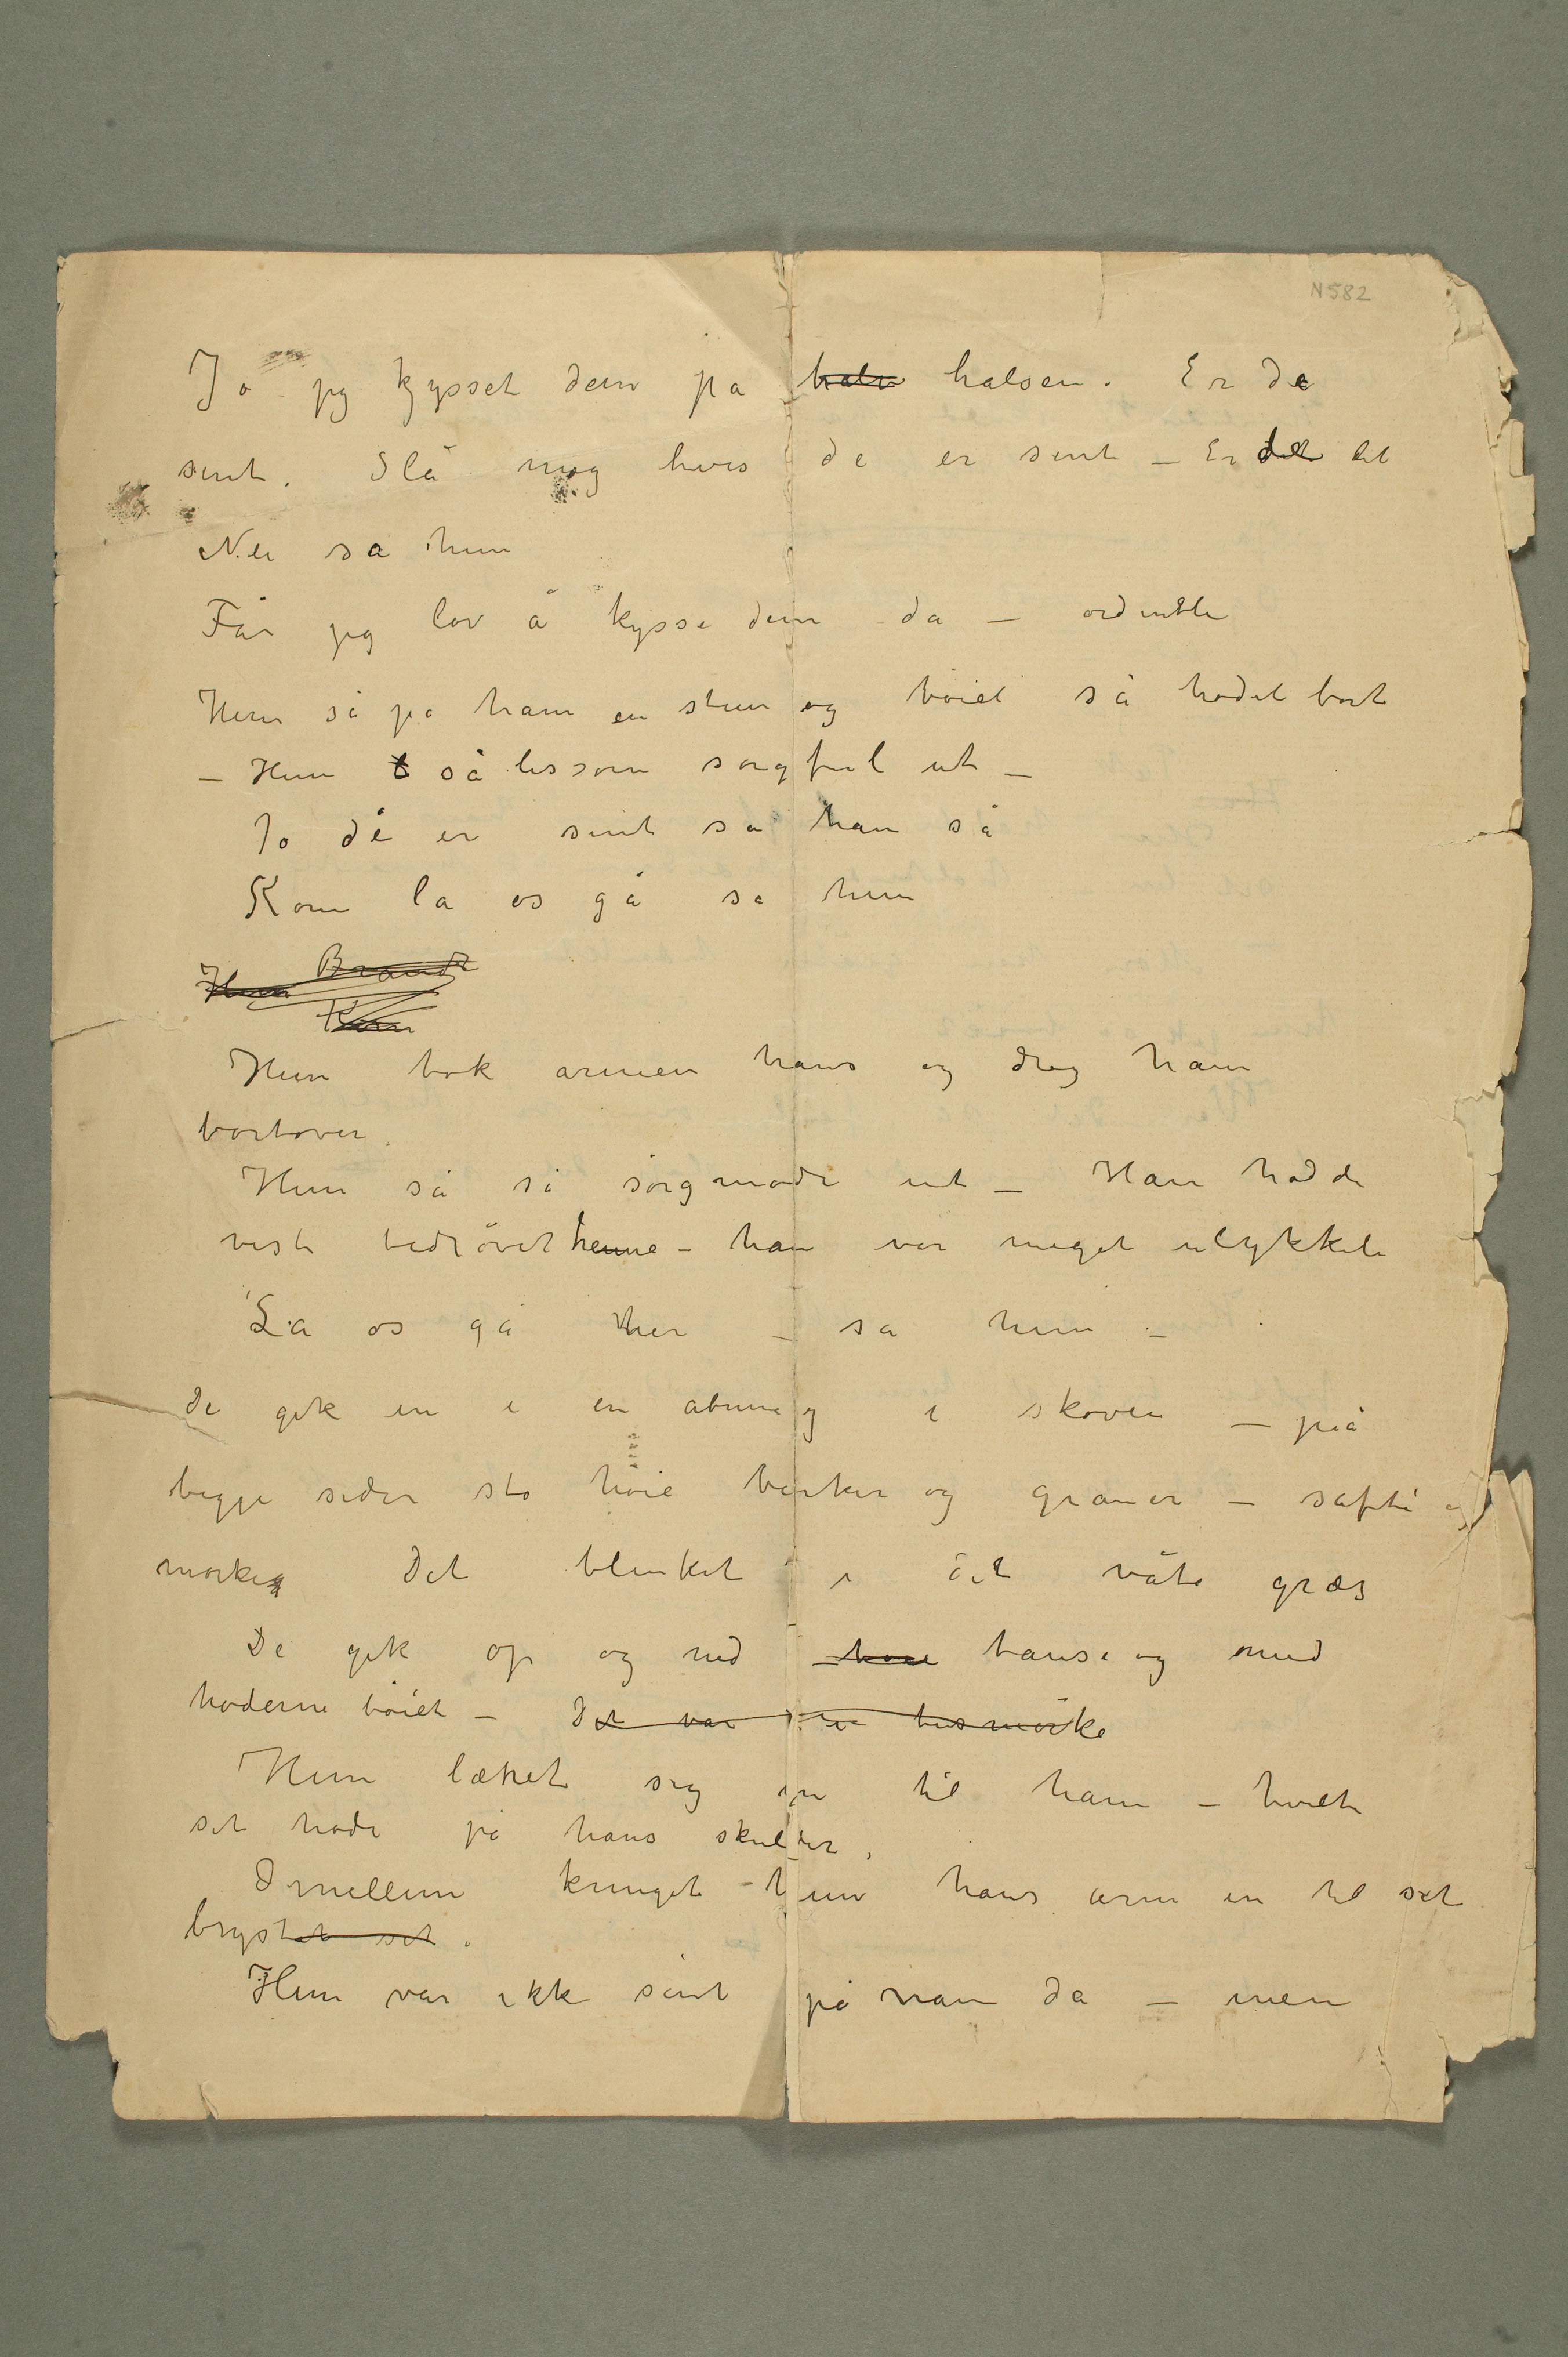 N 582
Jo jeg kysset dem på halsen. Er de
sint. Slå mig hvis de er sint – Er det det
Nei sa hun
Får jeg lov å kysse dem da – ordentli
Hun så på ham en stun og bøiet så hodet bort
– Hun så lissom sorgful ut –
Jo de er sint sa han så
Kom la os gå sa hun
Hun Brandt
Kom
Hun tok armen hans og drog ham
bortover.
Hun så så sørgmodi ut – Han hadde
vist bedrøvet henne – han var meget ulykkeli
La os gå her – sa hun –
De gik in i en åbning i skoven – på
begge sider sto høie birker og graner – safti og
mørke Det blinket i det våte græs
De gik op og ned tause og med
hoderne bøiet – Det var tusmørke
Hun lænet sig in til ham – hvilte
sit hode på hans skulder,
Imellem kruget hun hans arm in til sit
brystet sit.
Hun var ikke sint på ham da – men